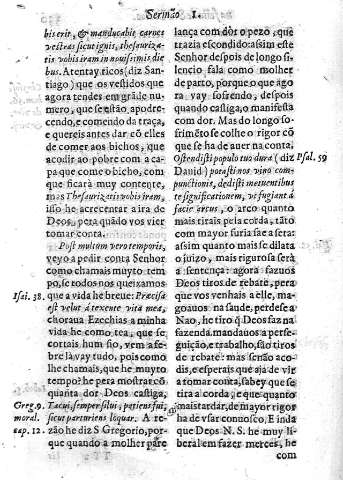 Sermão 1.
bis erit, & manducabit carnes
vestras sicut ignis, thesauriza-
tis vobis iram in nouissimis die
bus. Atentay ricos (diz San-
tiago) que os vestidos que
agora tendes em grãde nu-
mero, que se estão, apodre-
cendo, e comendo da traça,
e quereis antes dar cõ elles
de comer aos bichos, que
acodir ao pobre com a ca-
pa que come o bicho, com
que ficará muy contente,
mas Thesaurizatis vobis iram,
isso he acrecentar a ira de
Deos, pera quãdo vos vier
tomar conta.
Post multum vero temporis,
veyo a pedir conta Senhor
como chamais muyto tem
po, se todos nos queixamos
Isai. 38. que a vida he breue: Præcisa
est velut á texente vita mea,
choraua Ezechias a minha
vida he como tea, que se
cortais hum fio, vem a fe-
bre la vay tudo, pois como
lhe chamais, que he muyto
tempo? he pera mostrar cõ
quanta dor Deos castiga,
Greg. 9. Tacui, semper silui, patiens fui,
moral. sicut parturiens loquar. A re-
cap. 12. zão he diz S Gregorio, por-
que quando a molher pare
lança com dòr o pezo, que
trazia escondido: assim este
Senhor despois de longo si-
lencio fala como molher
de parto, porque o que ago
ra vay sofrendo, despois
quando castiga, o manifesta
com dor. Mas do longo so-
frimẽto se colhe o rigor cõ
que se ha de auer na conta.
Ostendisti populo tuo dura (diz Psal. 59
Dauid) potasti nos vino com-
punctionis, dedisti metuentibus
te significationem, vt fugiant á
facie arcus, o arco quanto
mais tirais pela corda, tãto
com mayor furia sae a seta:
assim quanto mais se dilata
o juizo, mais rigurosa será
a sentença: agora fazuos
Deos tiros de rebate, pera
que vos venhais a elle, ma-
goauos na saude, perdese a
Nao, he tiro q̃ Deos faz na
fazenda, mandauos a perse-
guição, e trabalho, são tiros
de rebate: mas se não aco-
dis, e esperais que aja de vir
a tomar conta, sabey que se
tira a corda, e que quanto
mais tardar, de mayor rigor
ha de vsar conuosco. E inda
que Deos N. S. he muy li-
beral em fazer merces, he
com